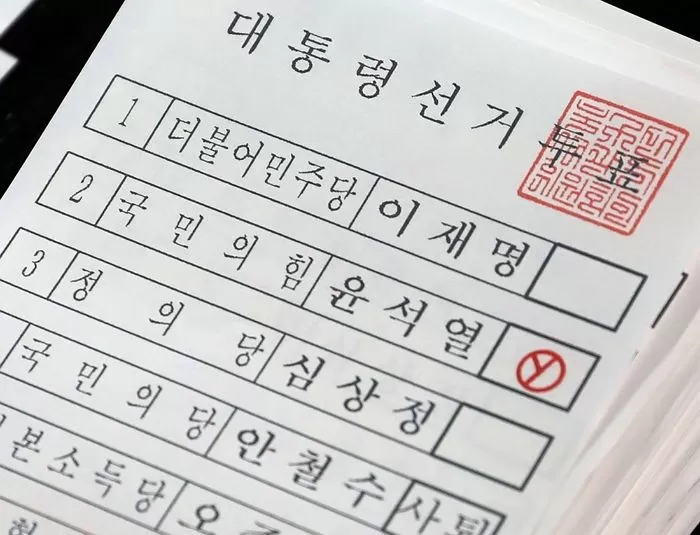 대통령선거투표
1 더불어민주당 이재명
2 국민의힘 윤석열
3 정의당 심상정
국민의당 안철수 사퇴
본소득당 오